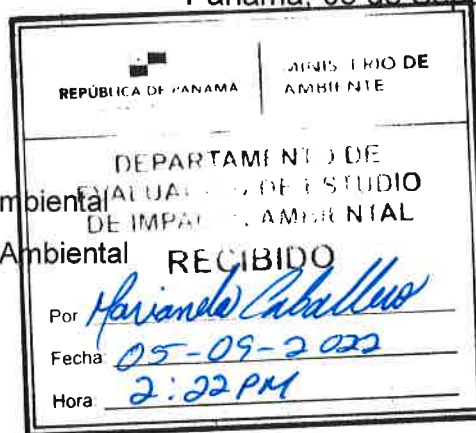 REPÚBLICA DE PANAMÁ
MINISTERIO DE
AMBIENTE
DEPARTAMENTO DE
EVALUACIÓN DE ESTUDIO
DE IMPACTO AMBIENTAL
mbiental
Ambiental
RECIBIDO
Por Marianela Caballero
Fecha: 05-09-2022
Hora: 2:22 PM